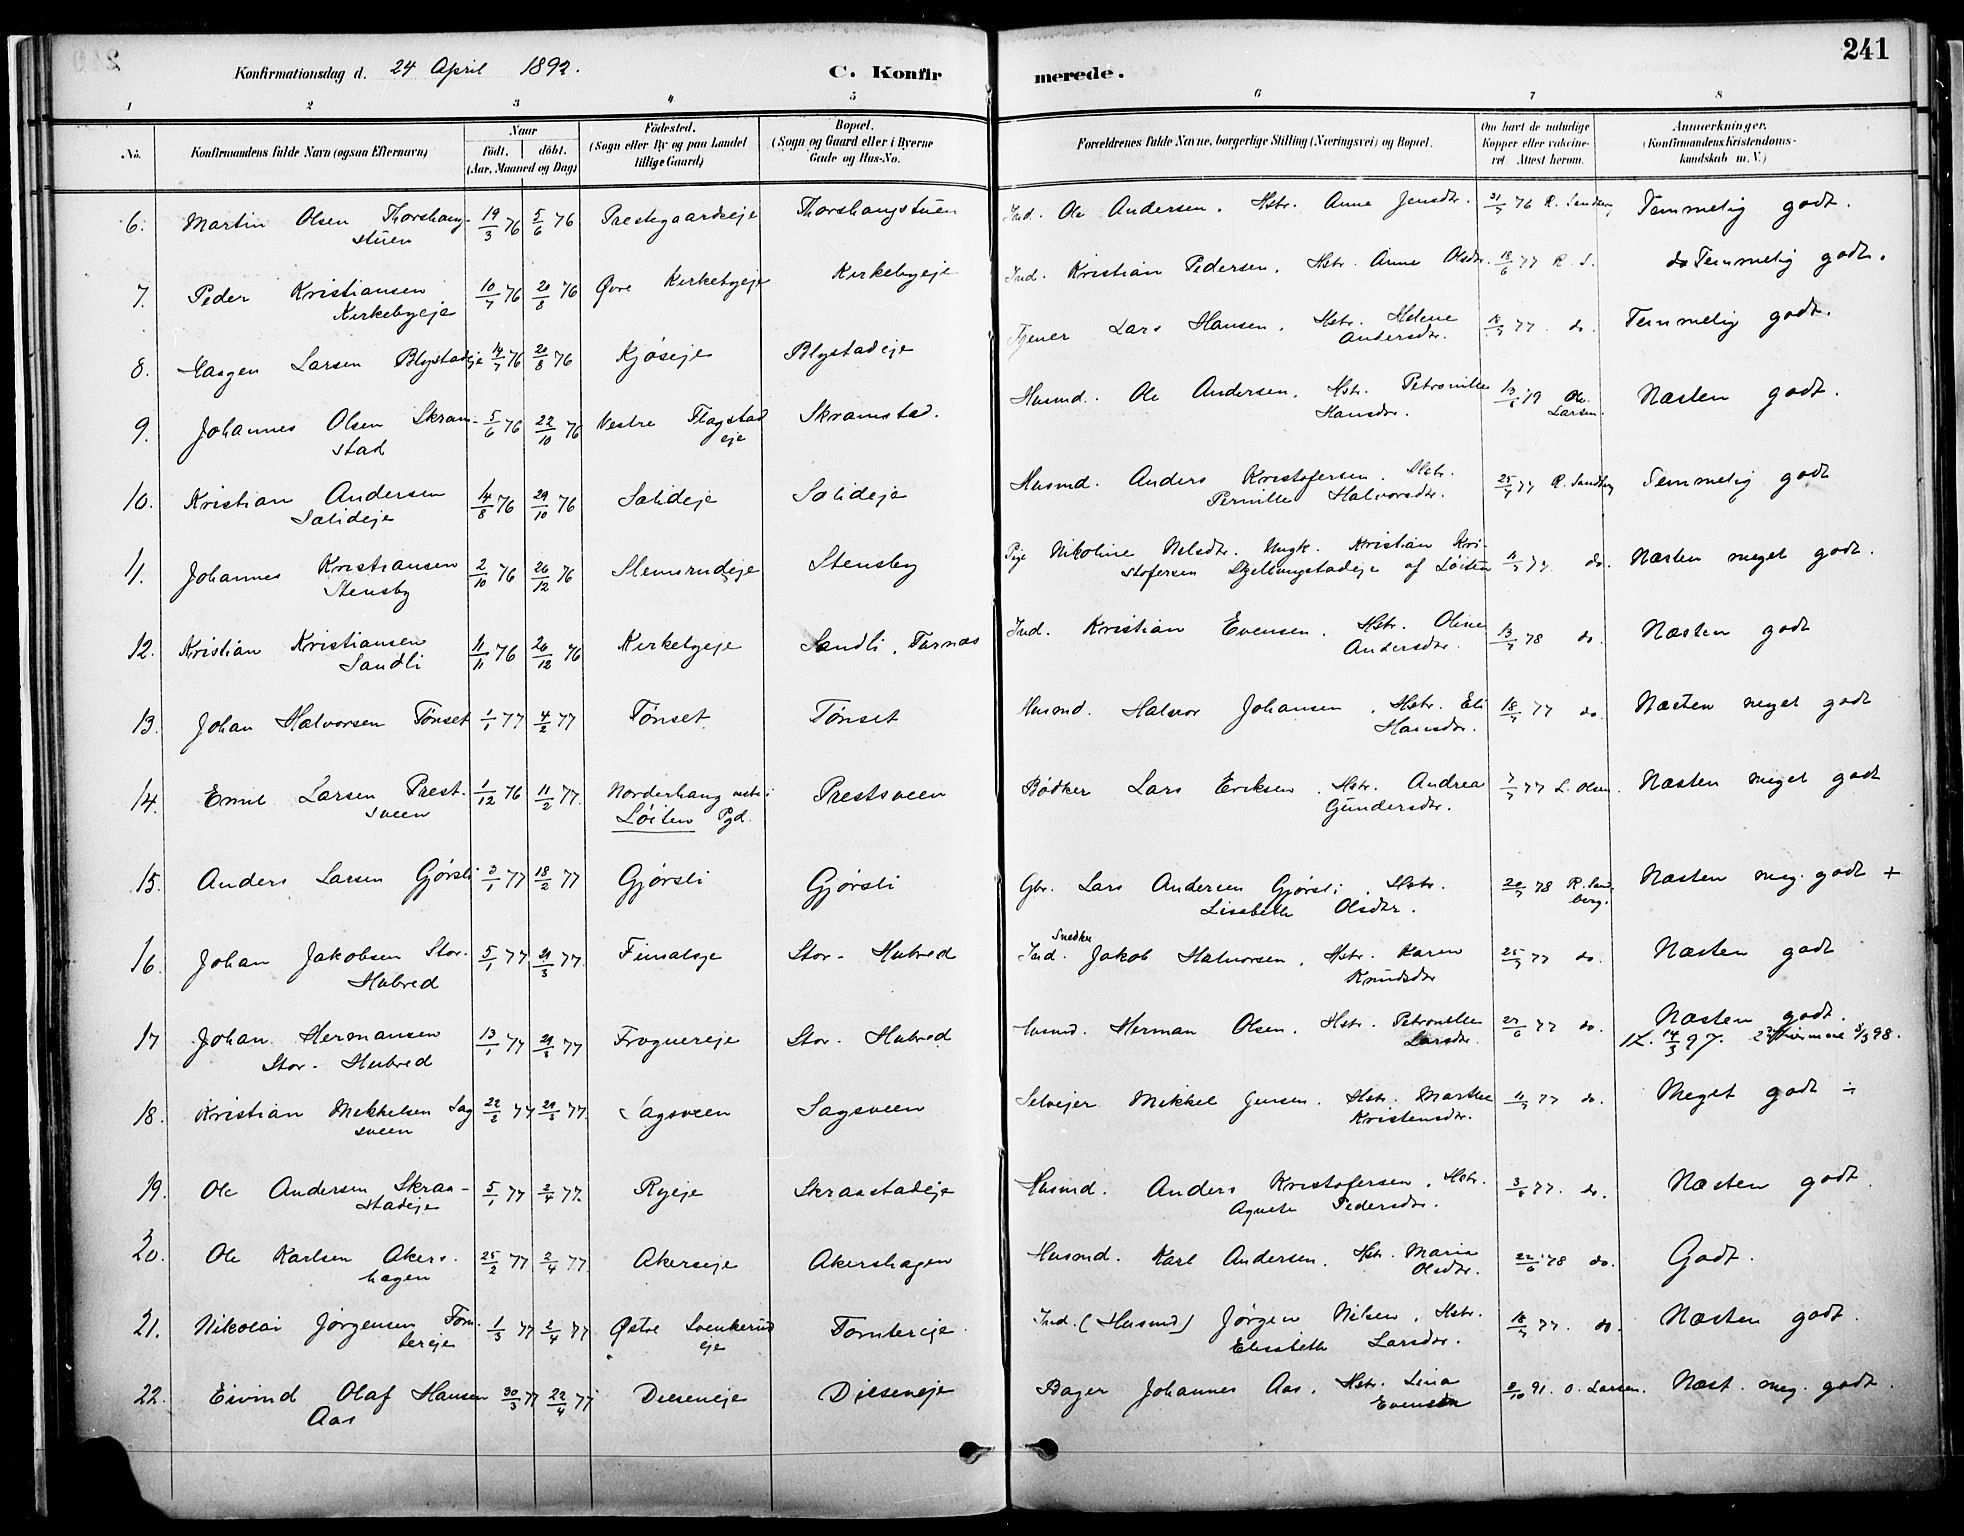 241
Konfirmationsdag d. 24 April 1892.
C. Konfirmerede.
1 2 3 4 5 6 7 8
No.
Konfirmandens fulde Navn (ogsaa Efternavn)
Naar
født. døbt.
(Aar, Maaned og Dag)
Fødested.
(Sogn eller By og paa Landet
tillige Gaard)
Bopæl.
(Sogn og Gaard eller i Byerne
Gade og Hus-No.
Forældrenes fulde Navne, borgerlige Stilling (Næringsvei) og Bopæl.
Om havt de naturlige
Kopper eller vakcine-
ret. Attest herom.
Anmerkninger.
(Konfirmandens Kristendoms-
kundskab m. V.)
6. Martin Olsen Thorshaug- 19/3 76 5/6 76 Prestegaardseje Thorshaugstuen Ind. Ole Andersen. Hstr. Anne Jensdtr. 76 R. Sandberg Temmelig godt.
stuen
7. Peder Kristiansen 10/7 76 20/8 76 Øvre Kirkebyeje Kirkebyeje Ind. Kristian Pedersen. Hstr. Anne Olsdtr. 18/6 77 R. S. do Temmelig godt.
Kirkebyeje
8. Haagen Larsen Blystadeje 14/7 76 20/8 76 Kjøseje Blystadeje Tjener Lars Hansen. Hstr. Helene 77 do. Temmelig godt.
Andersdtr.
9. Johannes Olsen Skram- 5/6 76 22/10 76 Vestre Flagstad Skramstad. Husmd. Ole Andersen. Hstr. Petronille 79 Ole Næsten godt.
stad eje Hansdtr. Larsen.
10. Kristian Andersen 14/8 76 29/10 76 Salideje Salideje Husmd. Anders Kristofersen. Hstr. 25/7 77 R. Sandberg Temmelig godt
Salideje Pernille Halvorsdtr.
11. Johannes Kristiansen 2/10 76 26/12 76 Slemsrudeje Stensby Pige Nikoline Nelsdtr. Ungk. Kristian Kri- 77 do. Næsten meget godt.
Stensby stofersen af Løiten
12. Kristian Kristiansen 11/11 76 26/12 76 Kirkebyeje Sandli, Farnæs Ind. Kristian Evensen. Hstr. Oline 13/7 78 do. Næsten godt
Sandli Andersdtr.
13. Johan Halvorsen Tønset 1/1 77 4/2 77 Tønset Tønset Husmd. Halvor Johansen. Hstr. Eli 18/7 77 do. Næsten meget godt
Hansdtr.
14. Emil Larsen Prest- 1/12 76 11/2 77. Norderhaug vestre i Prestsveen Bødker Lars Eriksen. Hstr. Andrea 7/7 77 L. Olsen. Næsten meget godt
sveen Løiten Pgd. Gundersdtr.
15. Anders Larsen Gjørsli 3/1 77 18/2 77 Gjørsli Gjørsli Gbr. Lars Andersen Gjørsli. Hstr. 20/7 78 R. Sand- Næsten meg. godt +
Lisabeth Olsdtr. berg.
Snedker
16. Johan Jakobsen Stor- 5/1 77 29/3 77. Stor-Hubred Ind. Jakob Halvorsen. Hstr. Karen 25/7 77 do. Næsten godt
Hubred Knudsdtr
17 Johan Hermansen 13/1 77 29/3 77 Frognereje Stor-Hubred Husmd. Herman Olsen. Hstr. Petronille 27/6 77 do. Næsten godt.
Stor-Hubred Larsdtr. 14/3 97. 98.
18. Kristian Mikkelsen Sag 22/2 77 29/3 77. Sagsveen Sagsveen Selvejer Mikkel Jensen. Hstr. Marthe 11/7 77 do. Meget godt ÷
sveen Kristensdtr.
19. Ole Andersen Skraa- 5/1 77 2/4 77. Ryeje Skraastadeje Husmd. Anders Kristofersen. Hstr. 77. do. Næsten godt.
stadeje Agnete Pedersdtr.
20. Ole Karlsen Akers- 25/2 77 2/4 77. Akerseje Akershagen Husmd. Karl Andersen. Hstr. Maria 22/6 78 do. Godt.
hagen Olsdtr.
21. Nikolai Jørgensen Torn- 1/3 77 2/4 77 Østre Svenkerud Torntereje Ind. (Husmd) Jørgen Nilsen. Hstr. 18/7 77. do. Næsten godt.
tereje eje Elisabeth Larsdtr.
22. Eivind Olaf Hansen 30/3 77 22/4 77 Dieseneje Dieseneje Bager Johannes Aas. Hstr. Lina 91. O. Larsen. Næst. meg. godt.
Aas Evensen